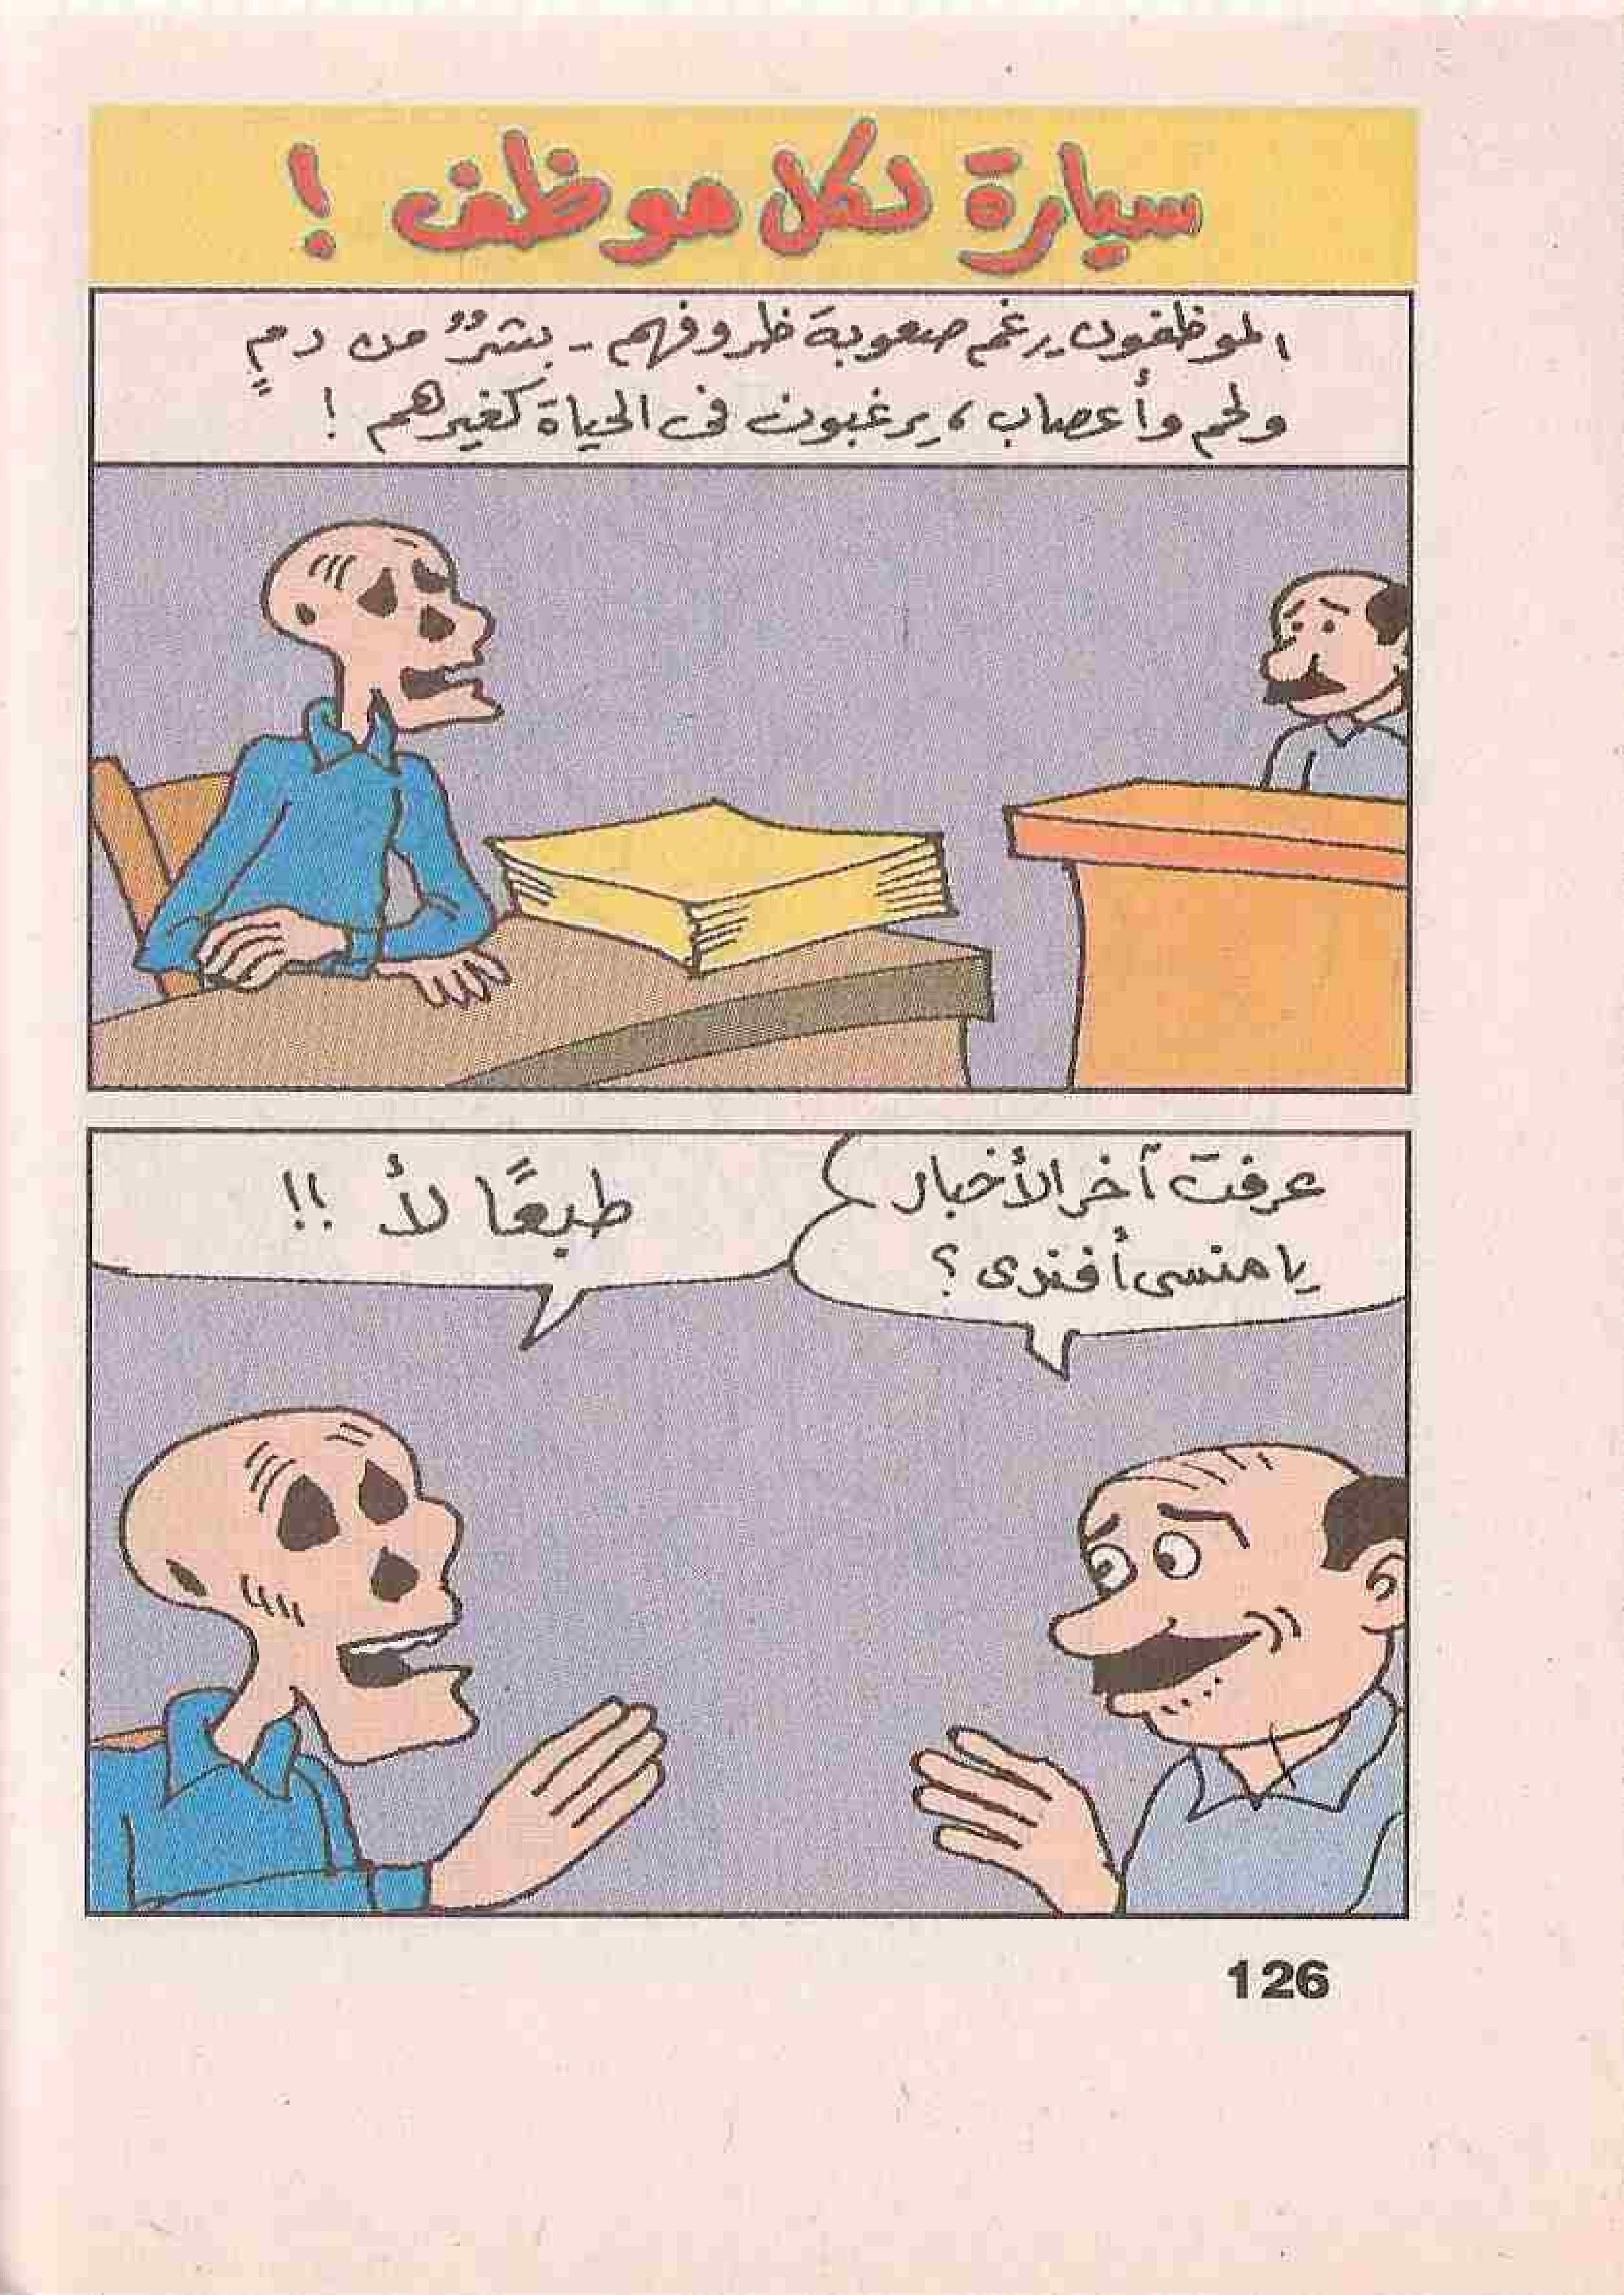 سيارة لكل موظف !
الموظفون - رغم صعوبة ظروفهم - بشرٌ من دمٍ
ولحم وأعصاب ، يرغبون فى الحياة كغيرهم !
عرفت آخر الأخبار
يا منسى أفندى ؟
طبعًا لأ !!
126